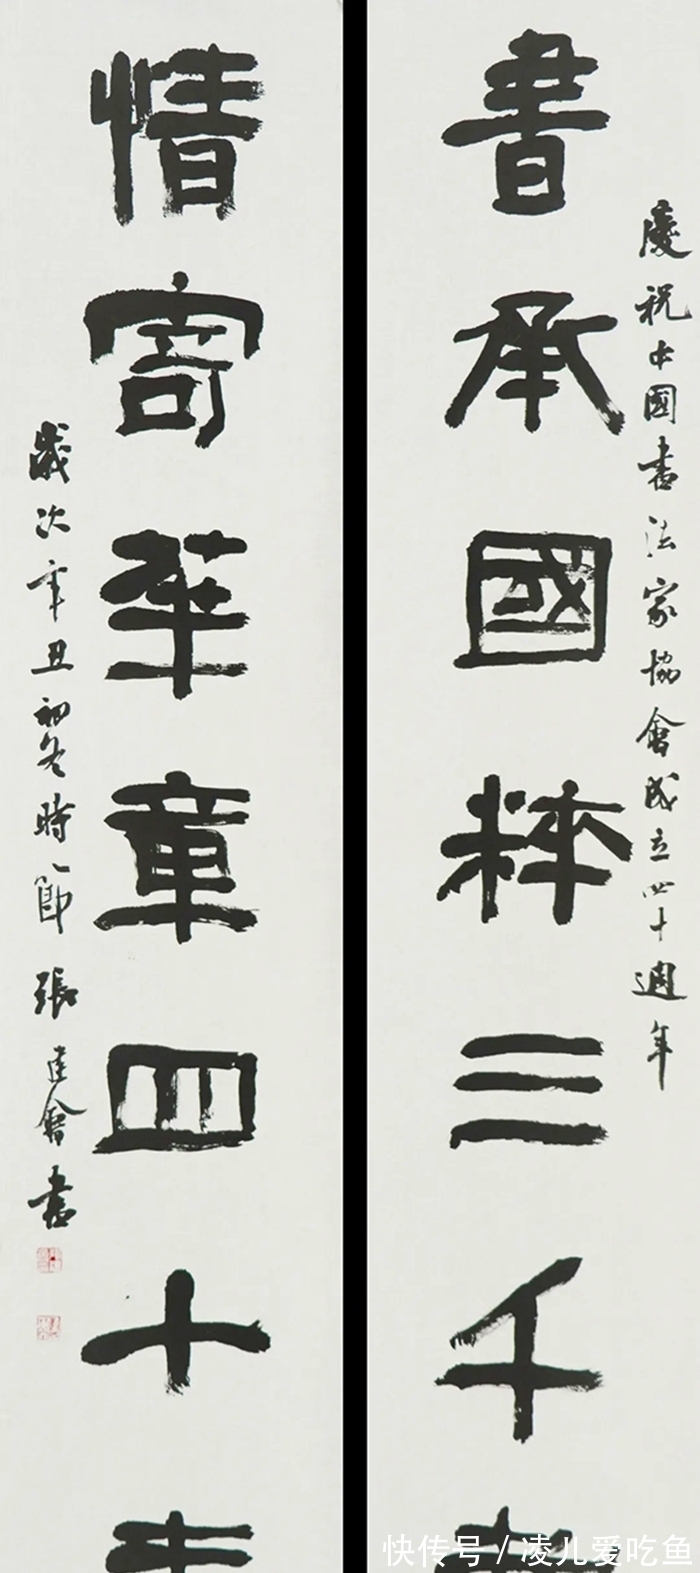 慶祝中國書法家協會成立四十週年
書承國粹三千
情寄華章四十
歲次辛丑初冬時節 張建會書
快传号 / 凌儿爱吃鱼